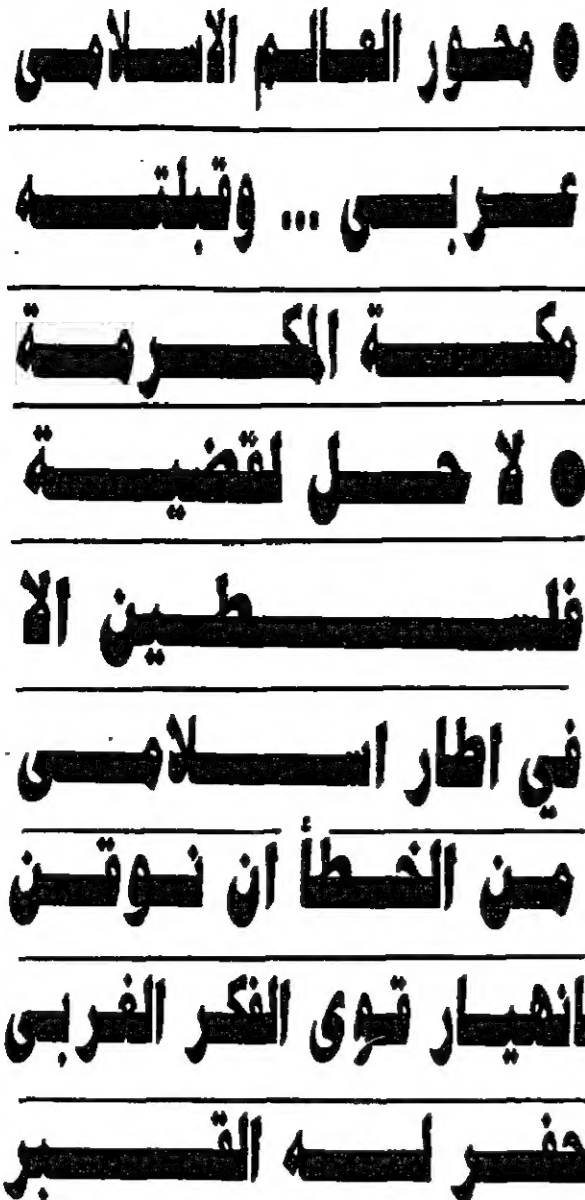 ● محور العالم الاسلامى
عربى ... وقبلته
مكة المكرمة
● لا حل لقضية
فلسطين الا
في اطار اسلامى
من الخطأ ان نوقن
بانهيار قوى الفكر الغربى
حفر له القبر